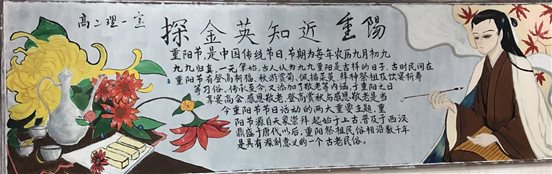 高二理一宣
探金英知近重陽
重阳节,是中国传统节日,节期为每年农历九月初九
九九归真,一元肇始,古人认为九九重阳是吉祥的日子,古时民间在
重阳节有登高祈福、秋游赏菊、佩插茱萸、拜神祭祖及饮宴祈寿
等习俗。传承至今,又添加了敬老等内涵,于重阳之日
享宴高会,感恩敬老。登高赏秋与感恩敬老是当
今重阳节日活动的两大重要主题。重
阳节源自天象崇拜,起始于上古,普及于西汉
鼎盛于唐代以后,重阳祭祖民俗相沿数千年
是具有深刻意义的一个古老民俗。